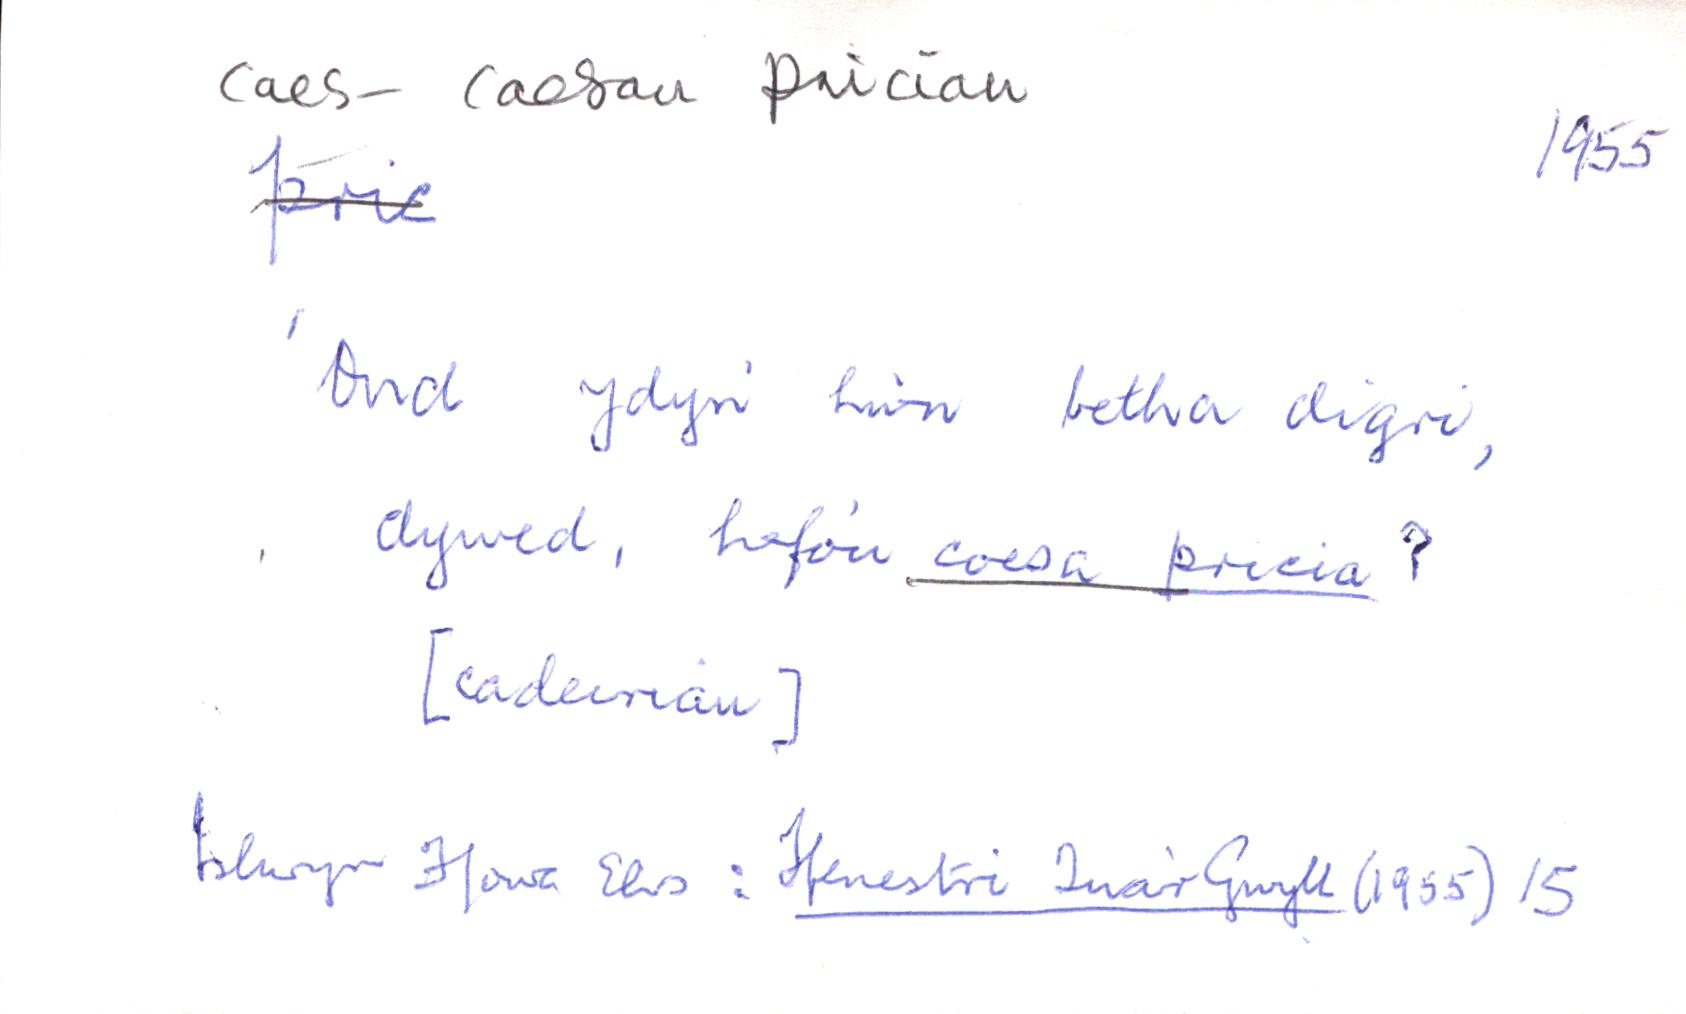 coes – coesau priciau
1955
pric
'Ond ydyn' hwn betha digri,
dywed, hefo'u coesa pricia?
[cadeiriau]
Islwyn Ffowc Elis : Ffenestri Tua'r Gwyll (1955) 15